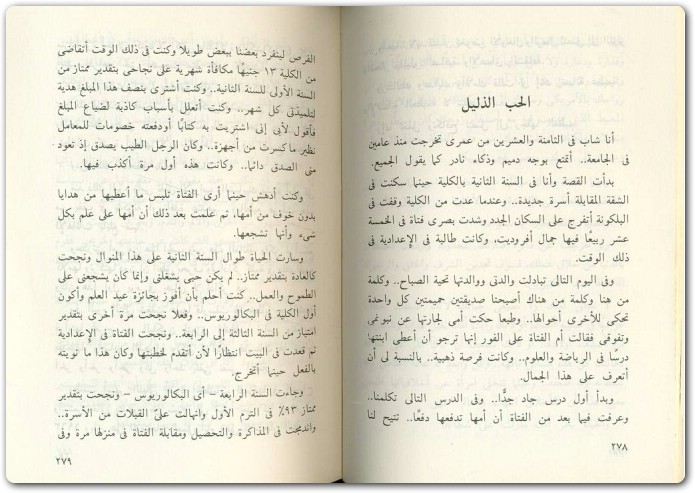 الحب الذليل
أنا شاب فى الثامنة والعشرين من عمرى تخرجت منذ عامين
فى الجامعة.. أتمتع بوجه دميم وذكاء نادر كما يقول الجميع.
بدأت القصة وأنا فى السنة الثانية بالكلية حينما سكنت فى
الشقة المقابلة أسرة جديدة.. وعندما عدت من الكلية وقفت فى
البلكونة أتفرج على السكان الجدد وشدت بصرى فتاة فى الخمسة
عشر ربيعًا فيها جمال أفروديت.. وكانت طالبة فى الإعدادية فى
ذلك الوقت.
وفى اليوم التالى تبادلت والدتى ووالدتها تحية الصباح.. وكلمة
من هنا وكلمة من هناك أصبحتا صديقتين حميمتين كل واحدة
تحكى للأخرى أحوالها.. وطبعا حكت أمى لجارتها عن نبوغى
وتفوقى فقالت أم الفتاة على الفور إنها ترجو أن أعطى ابنتها
درسًا فى الرياضة والعلوم.. وكانت فرصة ذهبية.. بالنسبة لى أن
أتعرف على هذا الجمال.
وبدأ أول درس جاد جدًّا.. وفى الدرس التالى تكلمنا..
وعرفت فيها بعد من الفتاة أن أمها تدفعها دفعًا.. تتيح لنا
٢٧٨
الفرص لينفرد بعضنا ببعض طويلا وكنت فى ذلك الوقت أتقاضى
من الكلية ١٣ جنيهًا مكافأة شهرية على نجاحى بتقدير ممتاز من
السنة الأولى للسنة الثانية.. وكنت أشترى بنصف هذا المبلغ هدية
لتلميذتى كل شهر.. وكنت أتعلل بأسباب كاذبة لضياع المبلغ
فأقول لأبى إنى اشتريت به كتابًا أودفعته خصومات للمعامل
نظير ما كسرت من أجهزة.. وكان الرجل الطيب يصدق إذ تعود
منى الصدق دائما.. وكانت هذه أول مرة أكذب فيها.
وكنت أدهش حينما أرى الفتاة تلبس ما أعطيها من هدايا
بدون خوف من أمها، ثم علمت بعد ذلك أن أمها على علم بكل
شىء وأنها تشجعها.
وسارت الحياة طوال السنة الثانية على هذا المنوال ونجحت
كالعادة بتقدير ممتاز.. لم يكن حبى يشغلنى وإنما كان يشجعنى على
الطموح والعمل.. كنت أحلم بأن أفوز بجائزة عيد العلم وأكون
أول الكلية فى البكالوريوس.. وفعلا نجحت مرة أخرى بتقدير
امتياز من السنة الثالثة إلى الرابعة.. ونجحت الفتاة فى الإعدادية
ثم قعدت فى البيت انتظارًا لأن أتقدم لخطبتها وكان هذا ما نويته
بالفعل حينما أتخرج.
وجاءت السنة الرابعة – أى البكالوريوس – ونجحت بتقدير
ممتاز ٩٣٪ فى الترم الأول وانهالت علىّ القبلات من الأسرة..
واندمجت فى المذاكرة والتحصيل ومقابلة الفتاة فى منزلها مرة وفى
٢٧٩